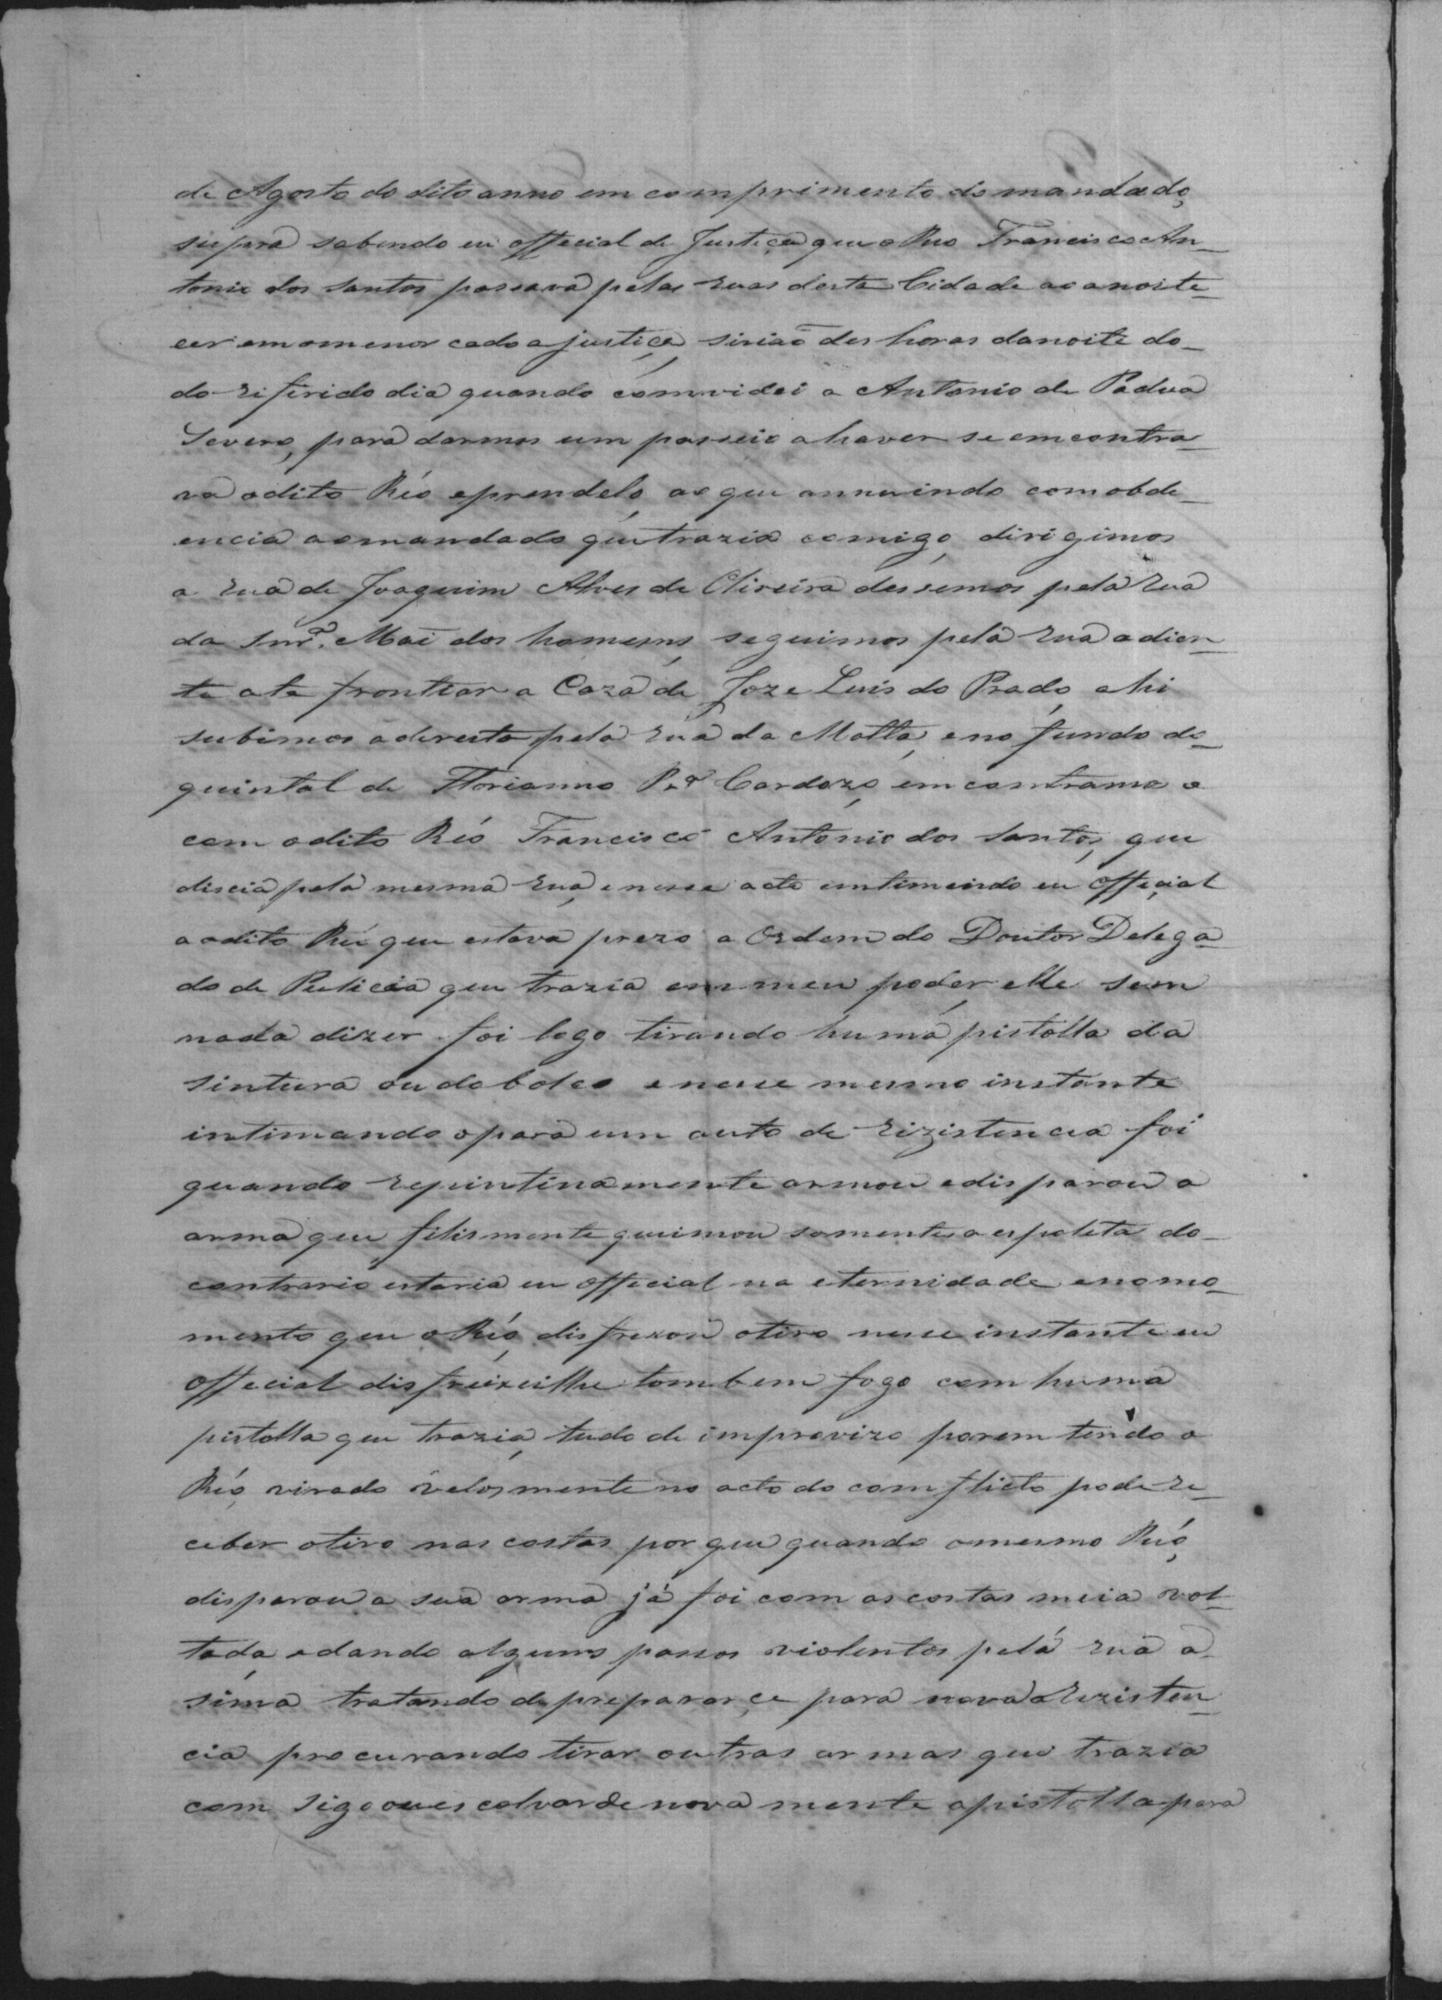 de Agosto do dito anno em comprimento do mandado,
supra sabendo eu official de Justiça que o Reo Francisco An-
tonio dos Santos passava pelas ruas desta Cidade ao anoite-
cer em omenor cado a justiça, sirião des horas da noite do-
do riferido dia quando comvidei a Antonio de Padua
Severo, para darmos um passeio a haver se emcontra-
va o dito Réo e prendelo, ao que annuindo com obde-
encia ao mandado que trazia comigo, dirigimos
a rua de Joaquim Alves de Oliveira dessemos pela rua
da Snrª. Mai dos homems, seguimos pela rua a dian-
te ate frontiar a Caza de Joze Luis do Prado, ahi
subimos a dereita pela rua da Matta, e no fundo do-
quintal de Florianno Prª Cardozo, emcontramo o
com o dito Réo Francisco Antonio dos Santos, que
discia pela mesma rua, e nesse acto intimindo eu Official
a o dito Réo que estava prezo a Ordem do Doutor Delega-
do de Pulicia que trazia em meu poder, elle sem
nada dizer foi logo tirando huma pistolla da
sintura ou do bolço e nesse mesmo instante
intimando o para um auto de rizistencia foi
quando repintinamente armou e disparou a
arma que filismente queimou somente a espoleta do-
contrario estaria eu official na eternidade e no mo-
mento que o Réo, disfrexou o tiro nesse instante eu
Official disfreixeilhe tombem fogo com huma
pistolla que trazia, tudo de improvizo porem tendo o
Réo, virado velosmente no acto do comflicto pode re-
ceber o tiro nas costas por que quando o mesmo Réo,
disparou a sua arma já foi com as costas meia vol-
tada e dando alguns passos violentos pela rua a-
sima tratando de preparar-ce para nova Rezisten-
cia procurando tirar outras armas que trazia
com sigo ou escalvar de nova mente a pistolla para